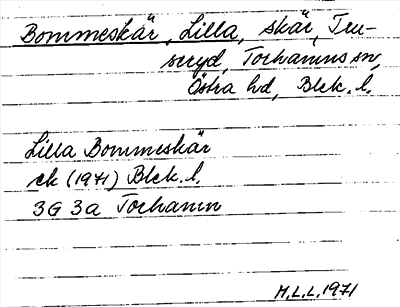 Bommeskär, Lilla, skär, Tru-
seryd, Torhamns sn,
Östra hd, Blek. l.
Lilla Bommeskär
ek (1971) Blek. l.
3G 3a Torhamn
M.L.L. 1971